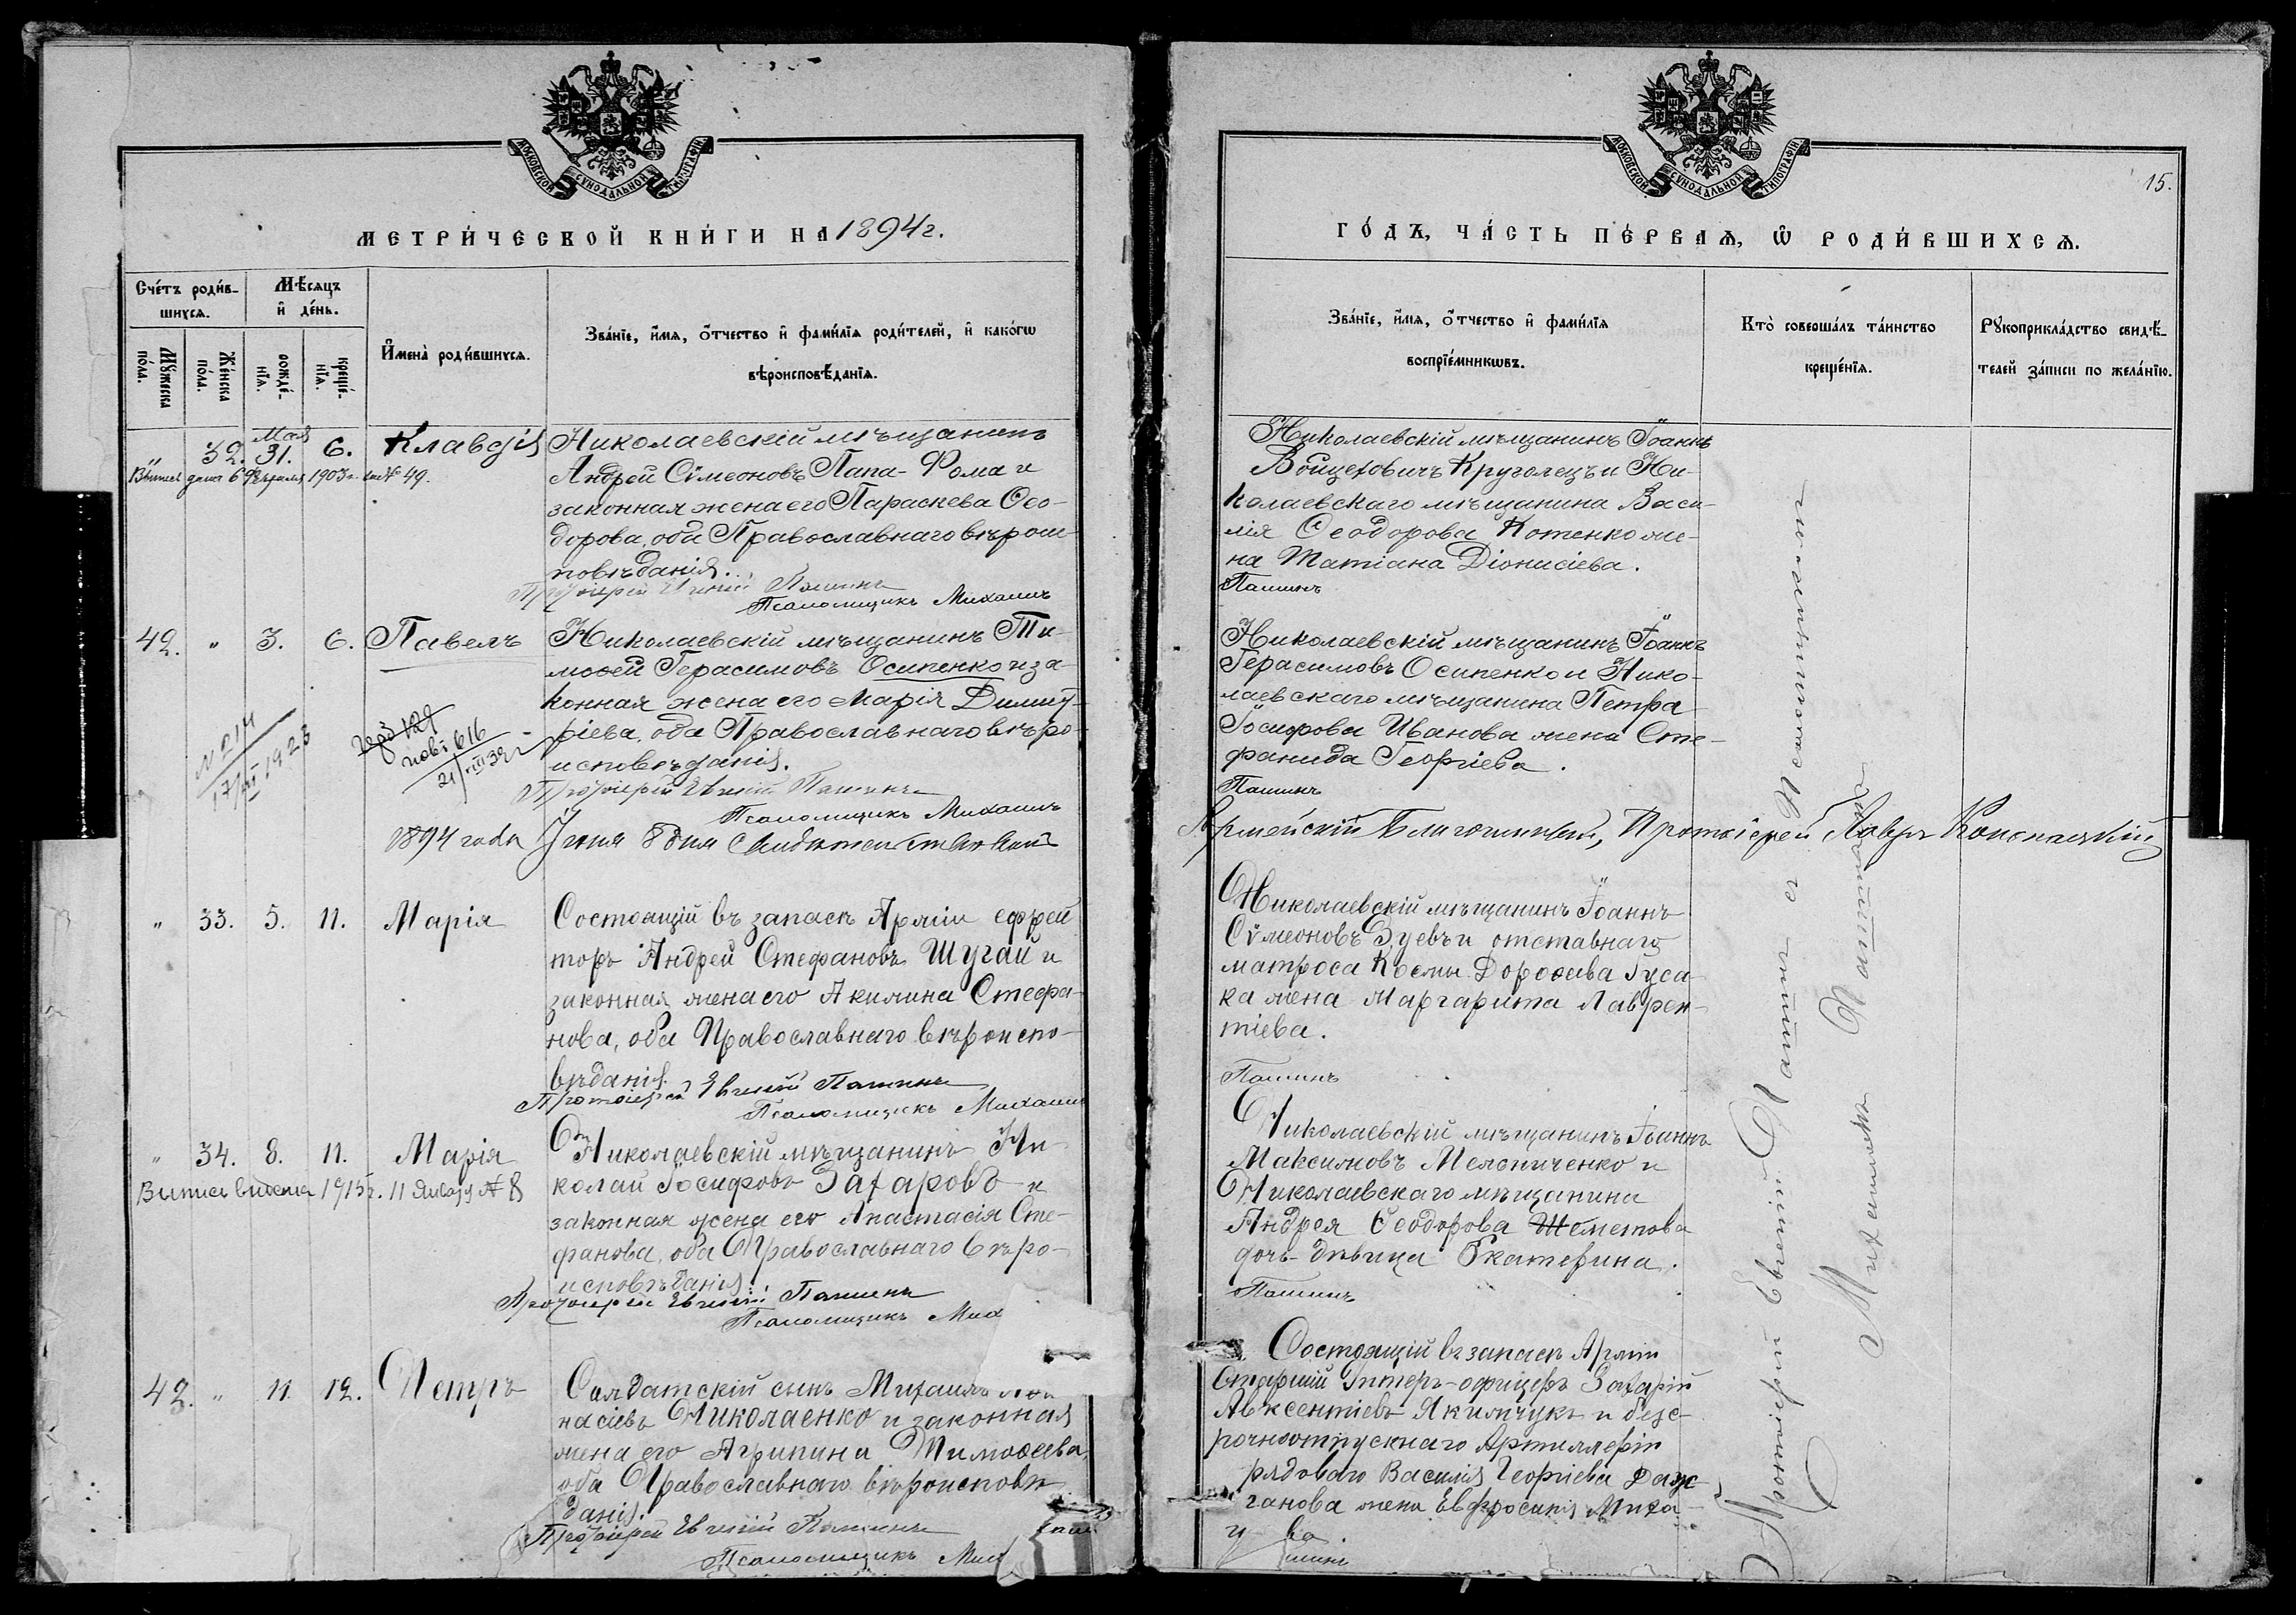 МОСКОВСКОЙ СУНОДАЛЬНОЙ ТИПОГРАФІИ
МЕТРИ́ЧЕСКОЙ КНИ́ГИ НА 1894 г.
Сче́тъ роди́в-
шихся.
Мѣ́сяцъ
и҆ де́нь.
Мꙋ́жеска
по́ла.
Же́нска
по́ла.
рожде́-
нїя.
креще́-
нїя.
И҆мена̀ роди́вшихся.
Зва́нїе, и҆́мя, ѻ҆́тчество и҆ фами́лїя роди́телей, и҆ како́гѡ
вѣроисповѣ́данїя.
" 32. Мая 31. 6. Клавдія
Выпись дана 6 Февраля 1903 г. за № 49.
Николаевскій мѣщанинъ
Андрей Сѵмеоновъ Папа-Фома и
законная жена его Параскева Ѳео-
дорова, оба Православнаго вѣроис-
повѣданія.
Протоіерей Евгеній Пашинъ
Псаломщикъ Михаилъ
42. " 3. 6. Павелъ
Николаевскій мѣщанинъ Ти-
моѳей Герасимовъ Осипенко и за-
конная жена его Марія Димит-
ріева, оба Православнаго вѣро-
исповѣданія.
Протоіерей Евгеній Пашинъ
Псаломщикъ Михаилъ
N 214
17/XI 1923
повт 616
21/VIII 39 г
1894 года Іюня 8 дня Свидѣтельствовалъ
" 33. 5. 11. Марія
Состоящій въ запасѣ Арміи ефрей-
торъ Андрей Стефановъ Шугай и
законная жена его Акилина Стефа-
нова, оба Православнаго вѣроиспо-
вѣданія.
Протоіерей Евгеній Пашинъ
Псаломщикъ Михаилъ
" 34. 8. 11. Марія
Выпись выдана 1915 г. 11 Января № 8
Николаевскій мѣщанинъ Ни-
колай Іосифовъ Захаровъ и
законная жена его Анастасія Сте-
фанова, оба Православнаго вѣро-
исповѣданія.
Протоіерей Евгеній Пашинъ
Псаломщикъ Мих
43. " 11. 12. Петръ
Солдатскій сынъ Михаилъ
насіевъ Николаенко и законная
жена его Агрипина Тимоѳеева,
оба Православнаго вѣроисповѣ-
данія.
Протоіерей Евгеній Пашинъ
Псаломщикъ Мих
МОСКОВСКОЙ СУНОДАЛЬНОЙ ТИПОГРАФІИ
15.
ГО́ДЪ, ЧА́СТЬ ПЕ́РВАѦ, Ѡ҆ РОДИ́ВШИХСѦ.
Зва́нїе, и҆́мя, ѻ҆́тчество и҆ фами́лїя
воспрїе́мникѡвъ.
Кто̀ соверша́лъ та́инство
креще́нїя.
Рꙋкоприкла́дство свидѣ́-
телей за́писи по жела́нїю.
Николаевскій мѣщанинъ Іоаннъ
Войцеховичъ Круголецъ и Ни-
колаевскаго мѣщанина Васи-
лія Ѳеодорова Котенко же-
на Татіана Діонисіева.
Пашинъ
Николаевскій мѣщанинъ Іоаннъ
Герасимовъ Осипенко и Нико-
лаевскаго мѣщанина Петра
Іосифова Иванова жена Сте-
фанида Георгіева.
Пашинъ
Армейскій Благочинный, Протоіерей Лавръ
Николаевскій мѣщанинъ Іоаннъ
Сѵмеоновъ Зуевъ и отставнаго
матроса Космы Дороѳеева Гуса-
ка жена Маргарита Лаврен-
тіева.
Пашинъ
Николаевскій мѣщанинъ Іоаннъ
Максимовъ Мельниченко и
Николаевскаго мѣщанина
Андрея Ѳеодорова Шеметова
дочь-дѣвица Екатерина.
Пашинъ
Состоящій въ запасѣ Арміи
Старшій Унтеръ-офицеръ Захарій
Авксентіевъ Якимчукъ и безс-
рочноотпускнаго Артиллеріи
рядоваго Василія Георгіева Даж-
ганова жена Евфросинія Миха-
ва.
Протоіерей Евгеній Пашинъ съ Псаломщикомъ